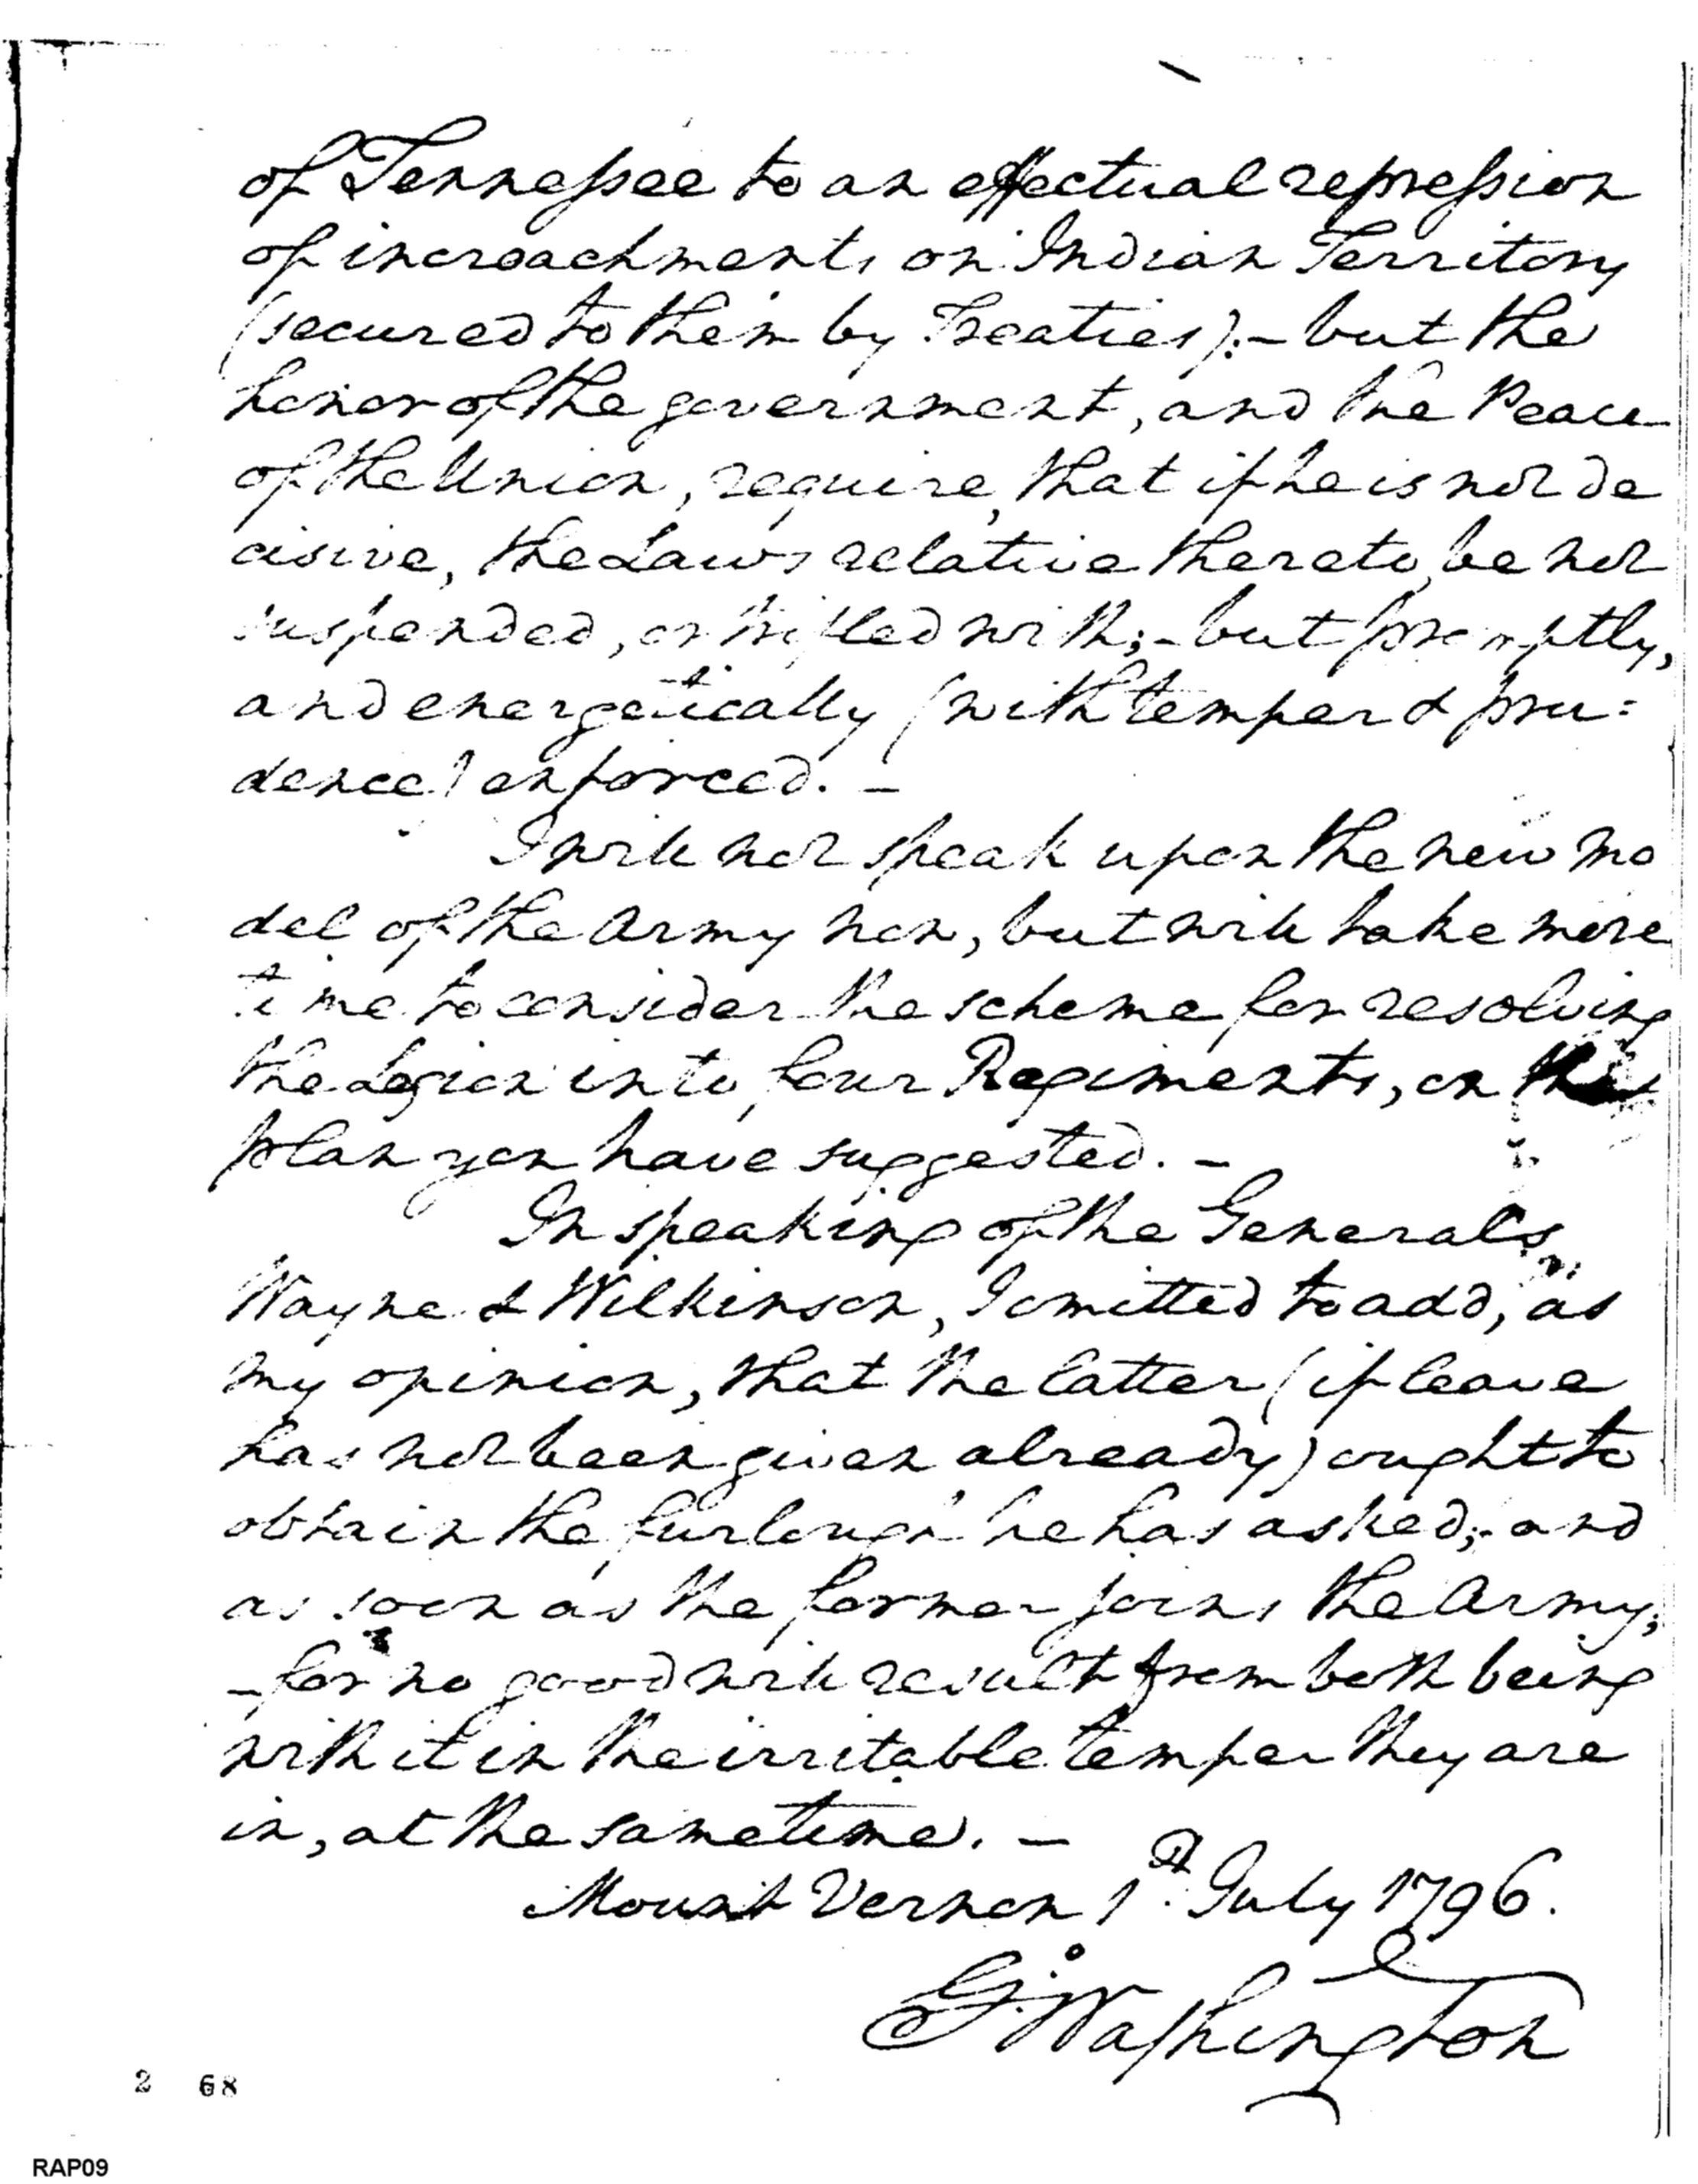 of Tennessee to an effectual repression
of incroachments on Indian Territory
(secured to them by Treaties);– but the
honor of the government, and the Peace
of the Union, require, that if he is not de
cisive, the Laws relative thereto, be not
suspended, or trifled with;– but promptly,
and energetically (with temper & pru=
dence) enforced. –
I will not speak upon the new mo
del of the Army now, but will take more
time to consider the scheme for resolving
the Legion into four Regiments, on the
plan you have suggested. –
In speaking of the Generals
Wayne & Wilkinson, I omitted to add, as
my opinion, that the latter (if leave
has not been given already) ought to
obtain the furlough he has asked;– and
as soon as the former joins the Army;
– for no good will result from both being
with it in the irritable temper they are
in, at the same time. –
Mount Vernon 1st. July 1796.
Go: Washington
2 68
RAP09